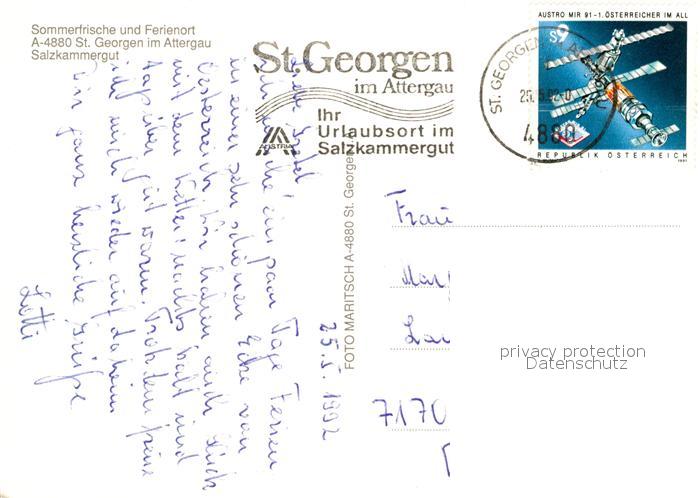 Sommerfrische und Ferienort
A-4880 St. Georgen im Attergau
Salzkammergut
St.Georgen
im Attergau
Ihr
Urlaubsort im
Salzkammergut
AUSTRIA
AUSTRO MIR 91-1. ÖSTERREICHER IM ALL
S9
REPUBLIK ÖSTERREICH
1991
ST. GEORGEN
4880
FOTO MARITSCH A-4880 St. George
25.5.1992
ein paar Tage Ferien
in einer sehr schönen Ecke von
Österreich. Wir haben auch Glück
mit dem Wetter: nachts kalt und
tags über gut warm. Trotzdem freue
ich mich wieder auf daheim
Ganz herzliche Grüße
Lotti
Frau
7170
privacy protection
Datenschutz